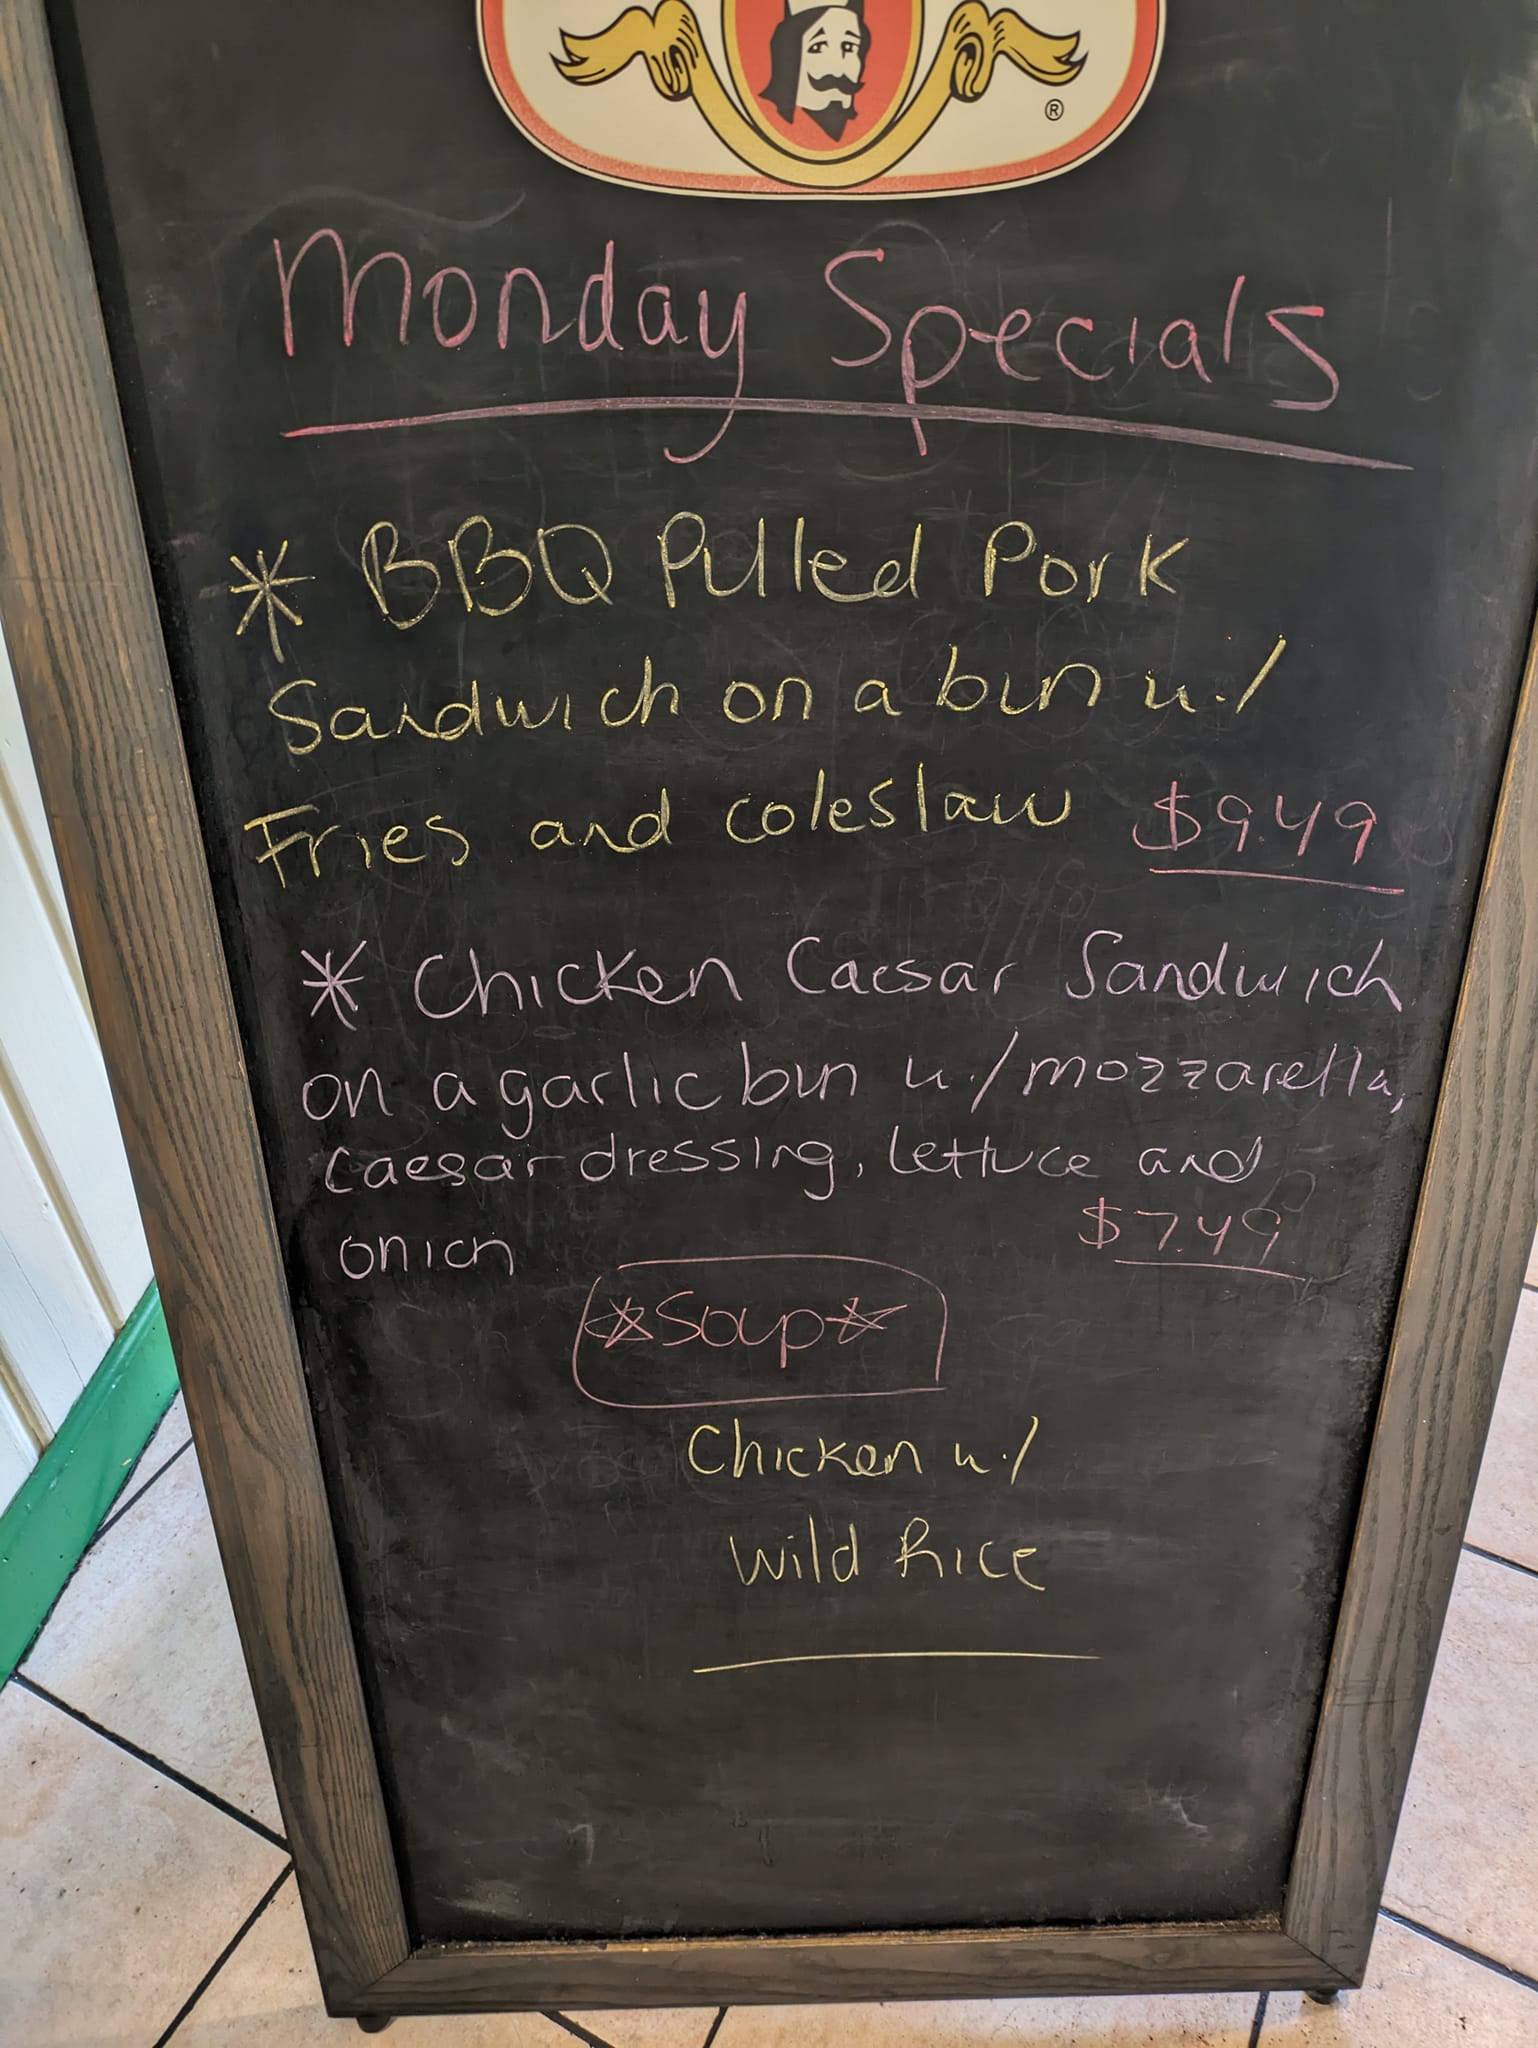 ®
Monday Specials
* BBQ Pulled Pork
Sandwich on a bun w./
Fries and coleslaw $9.49
* Chicken Caesar Sandwich
on a garlic bun w./mozzarella,
Caesar dressing, lettuce and
onion $7.49
☆Soup☆
Chicken w./
Wild Rice